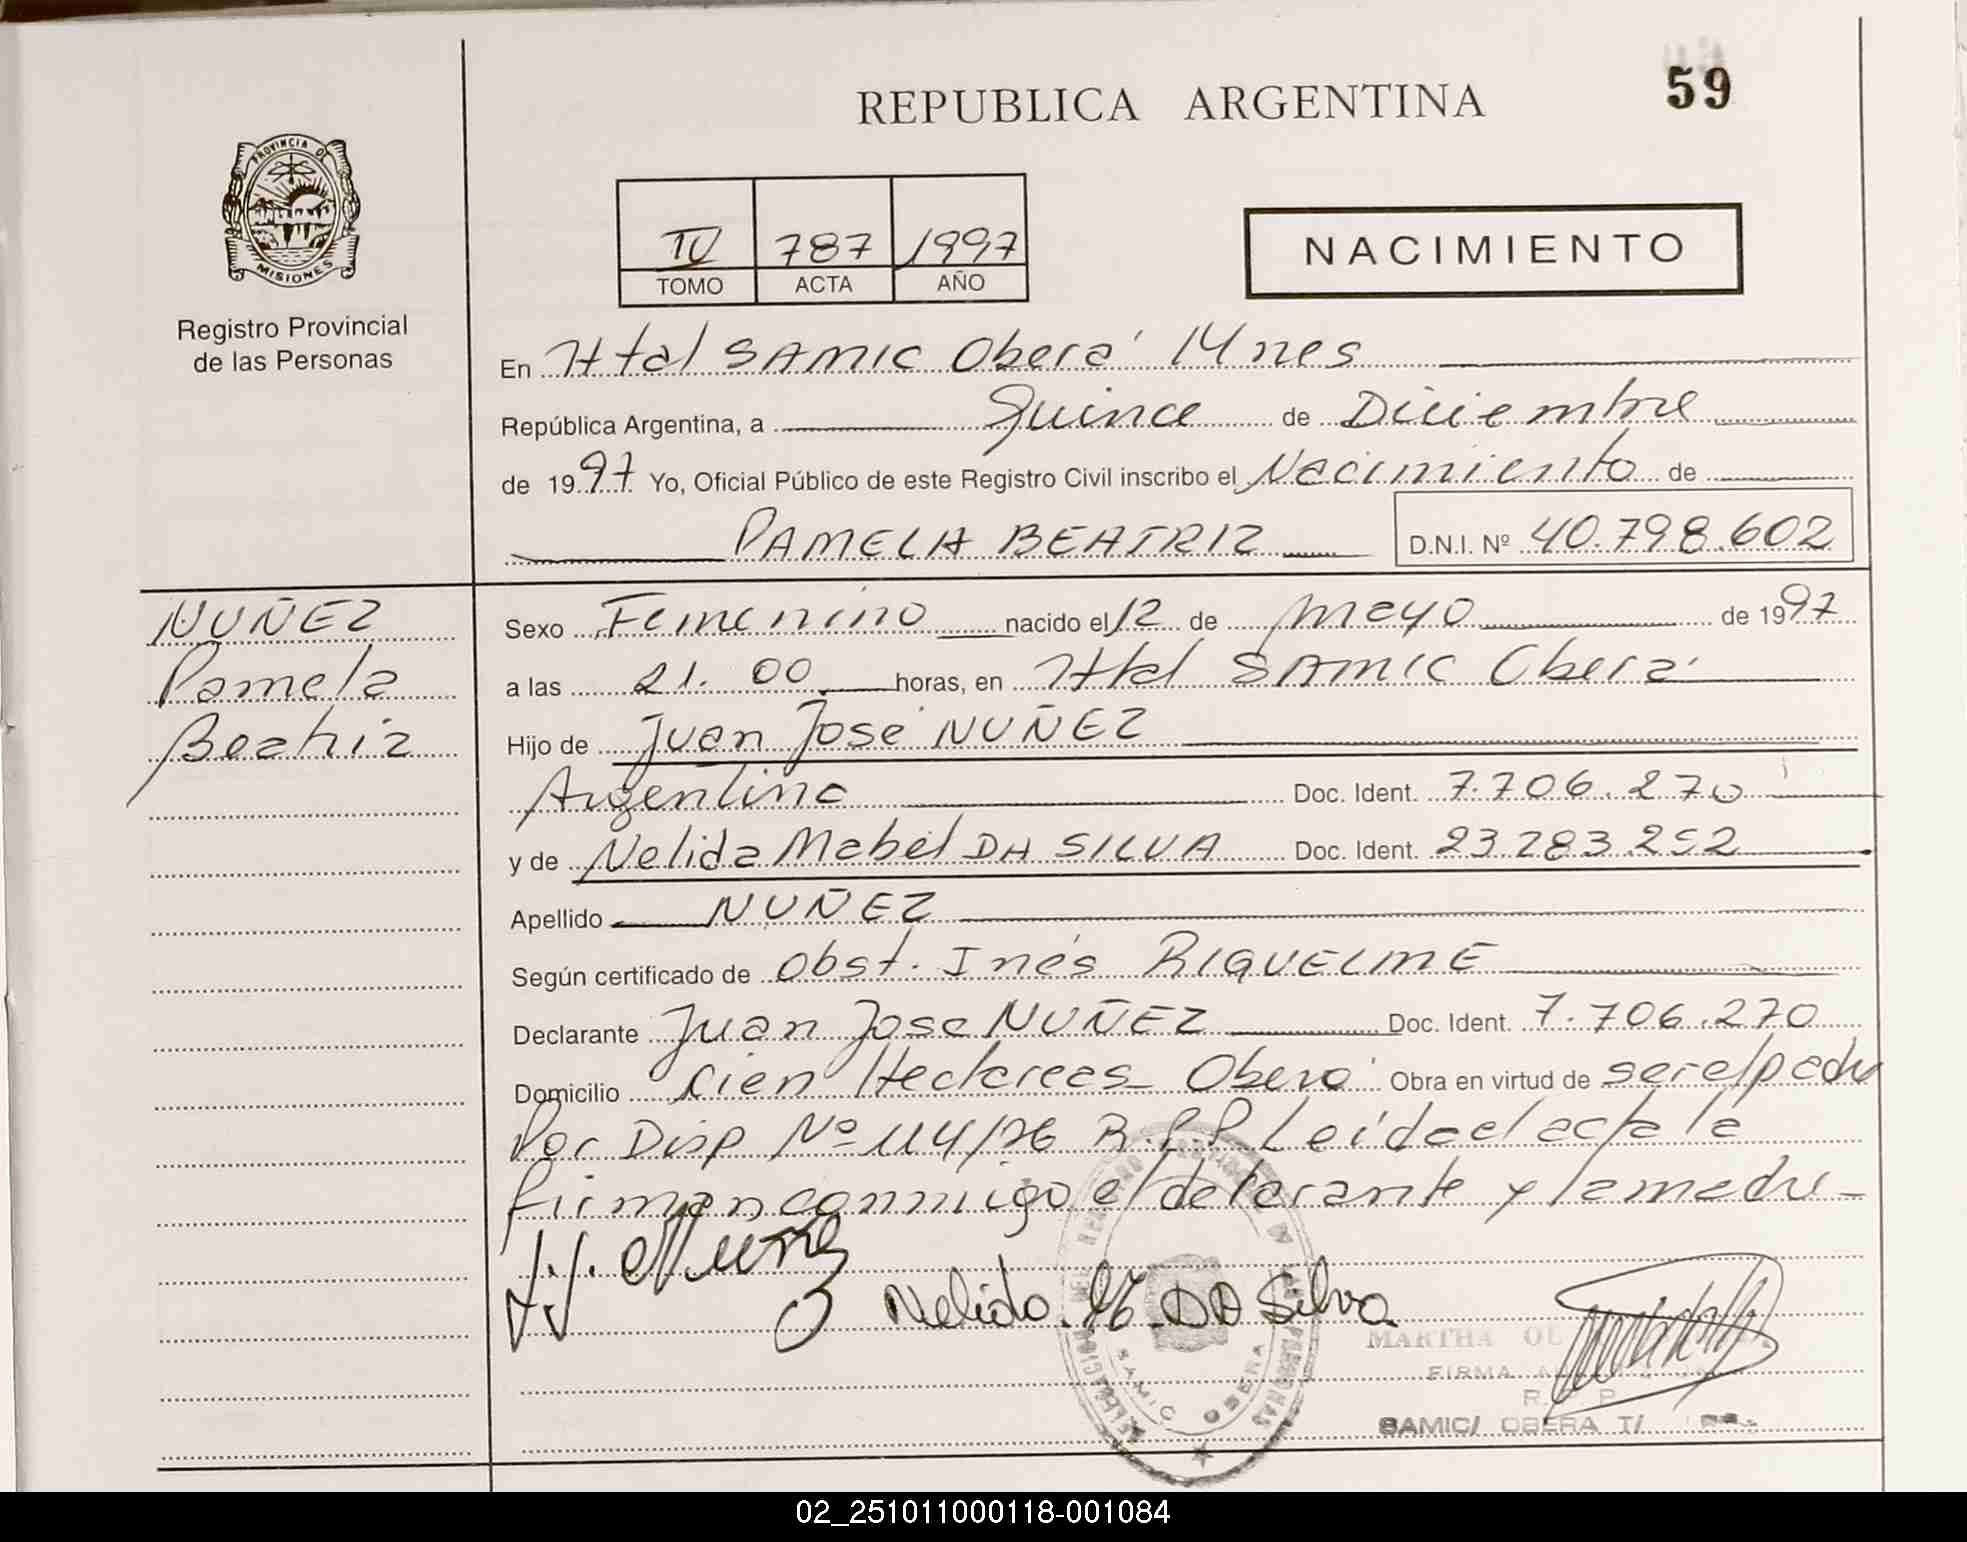 REPUBLICA ARGENTINA
59
PROVINCIA DE
MISIONES
Registro Provincial
de las Personas
IV 787 1997
TOMO ACTA AÑO
NACIMIENTO
En Htal SAMIC Oberá Mnes
República Argentina, a Quince de Diciembre
de 1997 Yo, Oficial Público de este Registro Civil inscribo el Nacimiento de
PAMELA BEATRIZ D.N.I. Nº 40.798.602
NUÑEZ
Pamela
Beatriz
Sexo Femenino nacido el 12 de Mayo de 1997
a las 21.00 horas, en Htal SAMIC Oberá
Hijo de Juan José NUÑEZ
Argentina Doc. Ident. 7.706.270
y de Nelida Mabel DA SILVA Doc. Ident. 23.283.252
Apellido NUÑEZ
Según certificado de Obst. Inés RIQUELME
Declarante Juan Jose NUÑEZ Doc. Ident. 7.706.270
Domicilio Cien Hectareas Oberá Obra en virtud de ser el padre
Por Disp Nº 114/76 R.P.P Leida el acta la
firman conmigo el declarante y la madre
J.J. Nuñez Nelida M. DA Silva
MARTHA
FIRMA
SAMIC OBERA
SAMIC/ OBERA
02_251011000118-001084